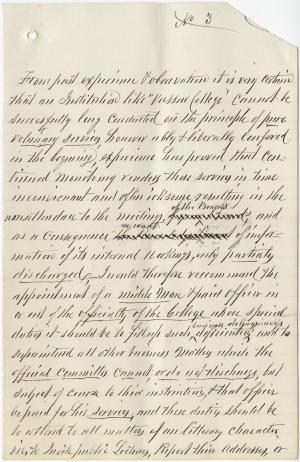 No 3
From past experience & observation it is very certain
that an Institution like "Vassar College" cannot be
successfully long conducted on the principle of pure
voluntary services however ably & liberally conferred
in the beginning, experience has proved that con-
tinued monotony renders those services in time
inconvenient and often irksome resulting in the
nonattendance to the meetings, of the Boards and
as a consequence of infor-
mation of its internal workings, only partially
discharged, I would therefore recommend the
appointment of a middle man & paid officer in
or out of the officiality of the College whose special
duties it should be to fill up such business delinquencys and to
superintend all other business matters which the
official committees cannot or do not discharge, but
subject of course to their instructions, & that officer
be paid for his services, and these duties should be
to attend to all matters of an literary character
invite public Lectures, Report their addresses, or